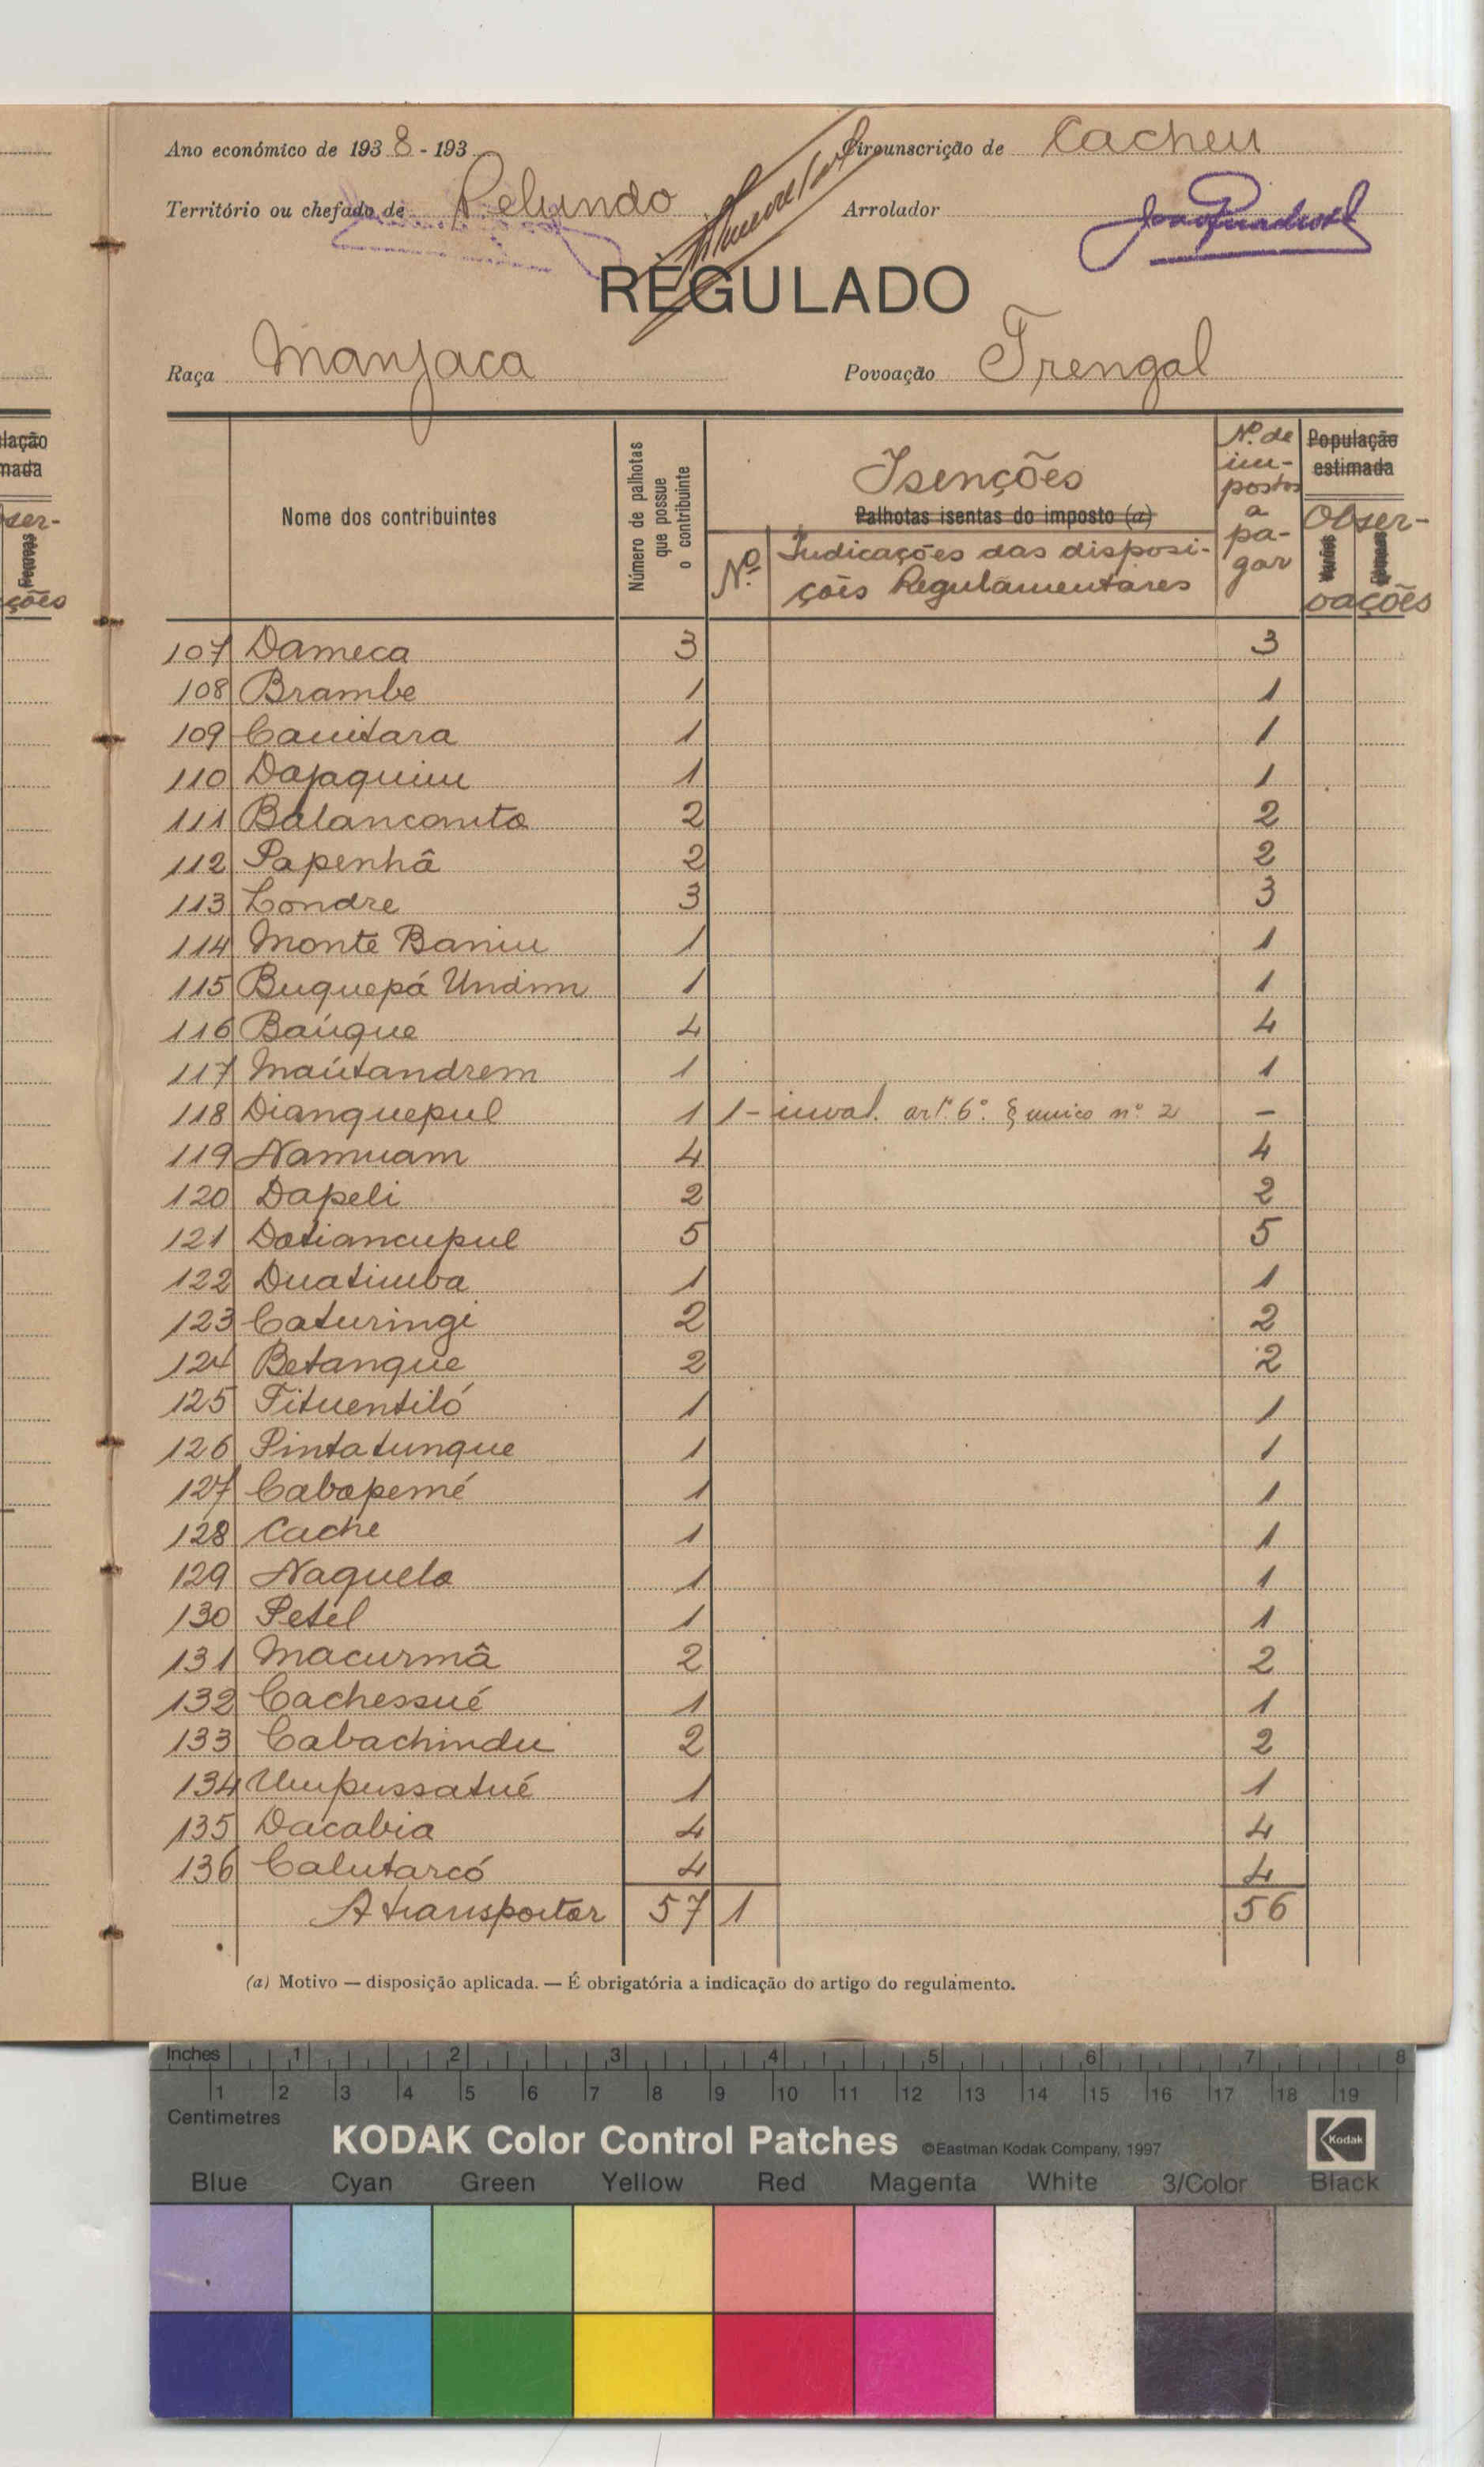 Ano económico de 193 8 - 193 Circunscrição de Cacheu
Território ou chefado de Pelundo Arrolador
REGULADO
Raça Manjaca Povoação Trengal
Nome dos contribuintes
Número de palhotas que possue o contribuinte
Isenções
Palhotas isentas do imposto (a)
Nº
Indicações das disposi-
ções Regulamentares
Nº de im-postos a pa-gar
População estimada
Obser-
vações
107 Dameca 3 3
108 Brambe 1 1
109 Cauitara 1 1
110 Dajaquim 1 1
111 Balancanta 2 2
112 Papenhâ 2 2
113 Londre 3 3
114 Monte Baniu 1 1
115 Buquepá Undim 1 1
116 Baúque 4 4
117 Maútandrem 1 1
118 Dianquepul 1 1 - inval. artº 6º § unico nº 2 -
119 Namuam 4 4
120 Dapeli 2 2
121 Datiancupul 5 5
122 Duatimba 1 1
123 Caturingi 2 2
124 Betanque 2 2
125 Fituentiló 1 1
126 Pintatunque 1 1
127 Cabapemé 1 1
128 Cache 1 1
129 Naquelo 1 1
130 Petel 1 1
131 Macurmâ 2 2
132 Cachessué 1 1
133 Cabachindu 2 2
134 Umpussatué 1 1
135 Dacabia 4 4
136 Calutarcó 4 4
A transportar 57 1 56
(a) Motivo — disposição aplicada. — É obrigatória a indicação do artigo do regulamento.
Inches 1 2 3 4 5 6 7 8
1 2 3 4 5 6 7 8 9 10 11 12 13 14 15 16 17 18 19
Centimetres
KODAK Color Control Patches ©Eastman Kodak Company, 1997 Kodak
Blue Cyan Green Yellow Red Magenta White 3/Color Black